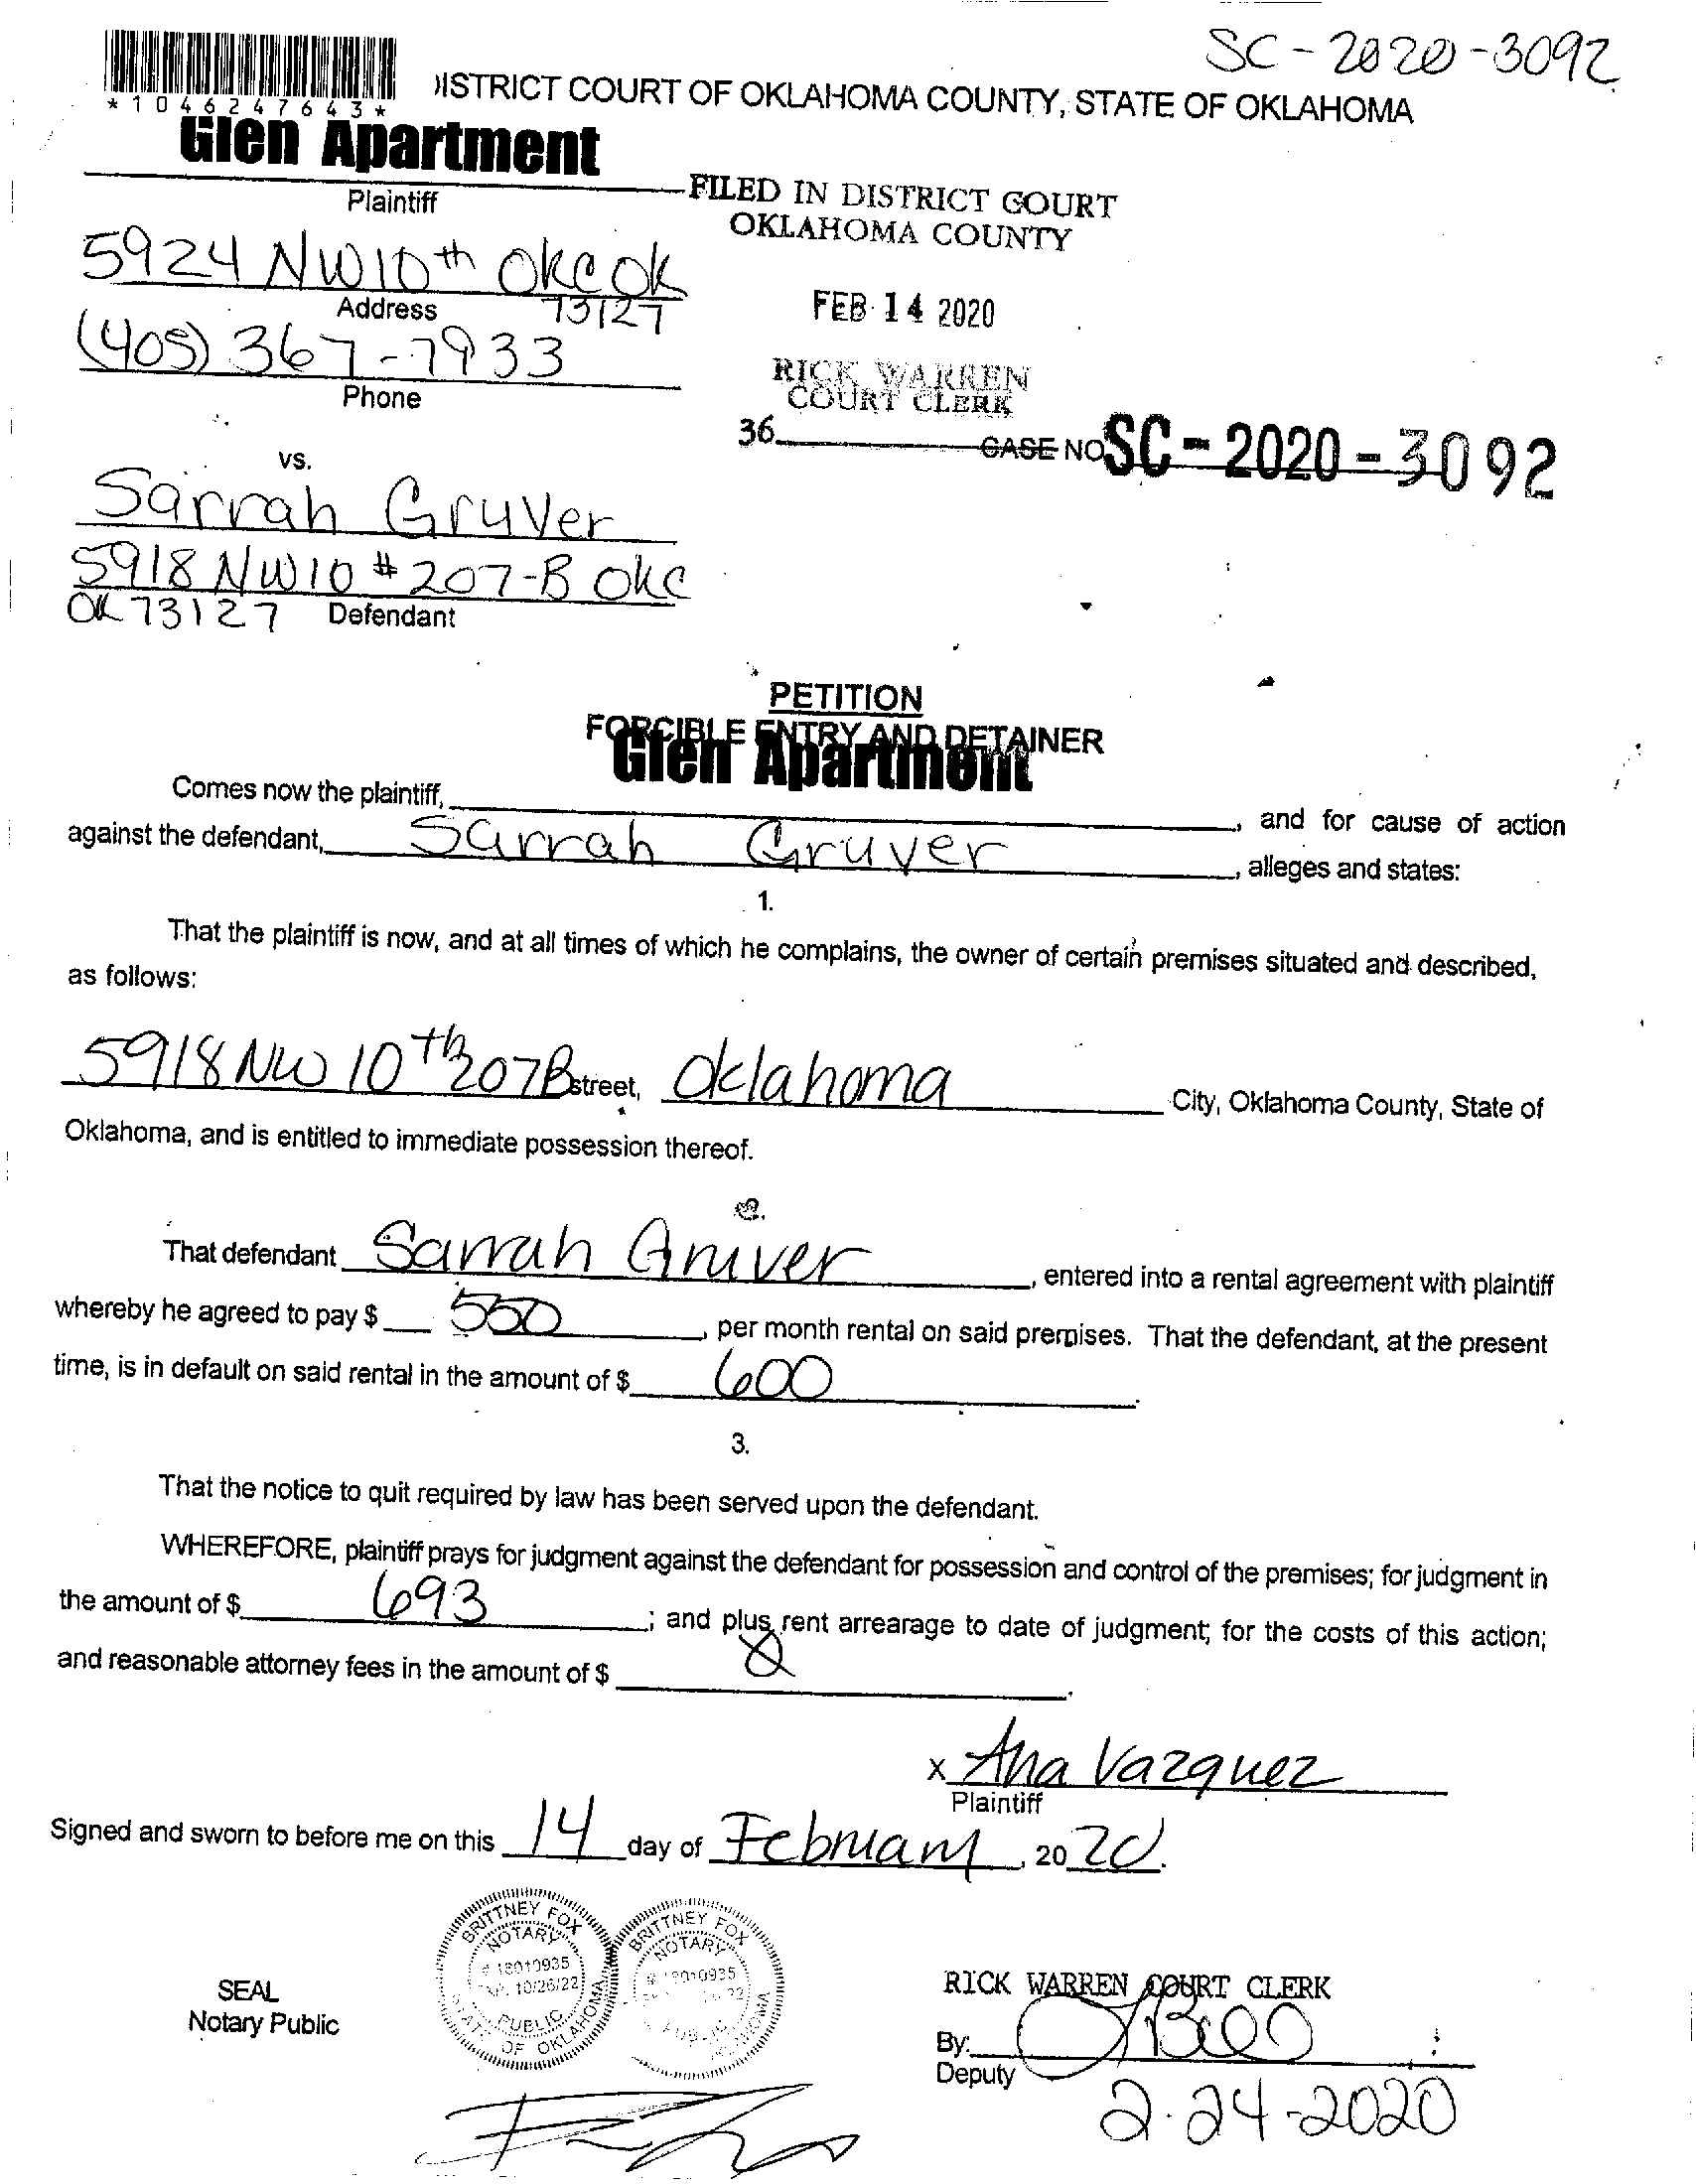 SC-2020-3092
*1046247643*
DISTRICT COURT OF OKLAHOMA COUNTY, STATE OF OKLAHOMA
Glen Apartment
Plaintiff
FILED IN DISTRICT COURT
OKLAHOMA COUNTY
5924 NW 10th OKC OK
Address
73127
FEB 14 2020
(405) 367-7933
Phone
RICK WARREN
COURT CLERK
36
CASE NO SC-2020-3092
vs.
Sarrah Gruver
5918 NW 10 # 207-B OKC
OK 73127
Defendant
PETITION
FORCIBLE ENTRY AND DETAINER
Glen Apartment
Comes now the plaintiff, , and for cause of action
against the defendant, Sarrah Gruver, alleges and states:
1.
That the plaintiff is now, and at all times of which he complains, the owner of certain premises situated and described,
as follows:
5918 NW 10th 207B street, Oklahoma City, Oklahoma County, State of
Oklahoma, and is entitled to immediate possession thereof.
2.
That defendant Sarrah Gruver, entered into a rental agreement with plaintiff
whereby he agreed to pay $ 550, per month rental on said premises. That the defendant, at the present
time, is in default on said rental in the amount of $ 600.
3.
That the notice to quit required by law has been served upon the defendant.
WHEREFORE, plaintiff prays for judgment against the defendant for possession and control of the premises; for judgment in
the amount of $ 693; and plus rent arrearage to date of judgment; for the costs of this action;
and reasonable attorney fees in the amount of $ .
x Ana Vazquez
Plaintiff
Signed and sworn to before me on this 14 day of February, 2020.
BRITTNEY FOX
NOTARY
# 18010935
EXP. 10/26/22
PUBLIC
STATE OF OKLAHOMA
BRITTNEY FOX
NOTARY
SEAL
Notary Public
RICK WARREN COURT CLERK
By:
Deputy
2-24-2020